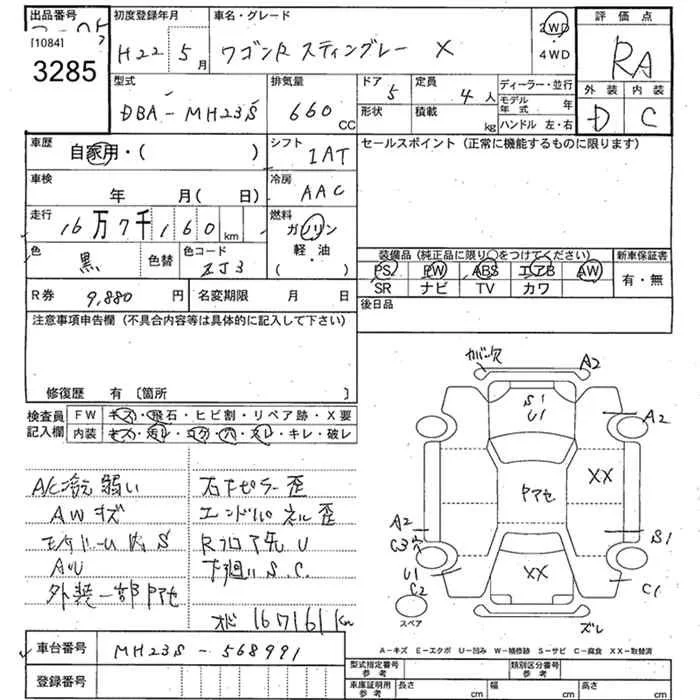 出品番号
[1084]
3285
初度登録年月
H22 5月
車名・グレード
ワゴンR スティングレー X
2WD
・
4WD
評価点
RA
外装 内装
D C
型式
DBA-MH23S
排気量
660 CC
ドア 5
形状
定員 4人
積載 kg
ディーラー・並行
モデル年式 年
ハンドル 左・右
車歴
自家用・( )
シフト
IAT
セールスポイント(正常に機能するものに限ります)
車検
年 月( 日)
冷房
AAC
走行
16万7千160km
燃料
ガソリン
軽・油
・
( )
色
黒
色替
色コード
ZJ3
装備品(純正品に限り○をつけてください)
新車保証書
PS PW ABS エアB AW
SR ナビ TV カワ
有・無
R券 9,880 円
名変期限 月 日
後日品
注意事項申告欄(不具合内容等は具体的に記入して下さい)
修復歴 有〔箇所 〕
検査員記入欄
FW キズ・飛石・ヒビ割・リペア跡・X要
内装 キズ・汚レ・コゲ・穴・スレ・キレ・破レ
A/C冷え弱い
AWキズ
外装一部ヤアセ
右Fピラー歪
エンドパネル歪
Rフロア先U
下廻りS.C.
メーター 167161Km
カバー欠
A2
S1
U1
A2
XX
ヤアセ
A2
C3穴
S1
U1
C2
XX
C1
スペア
ズレ
A-キズ E-エクボ U-凹み W-補修跡 S-サビ C-腐食 XX-取替済
車台番号
MH23S-568991
登録番号
型式指定番号
参考
類別区分番号
参考
車庫証明用
参考
長さ cm
幅 cm
高さ cm